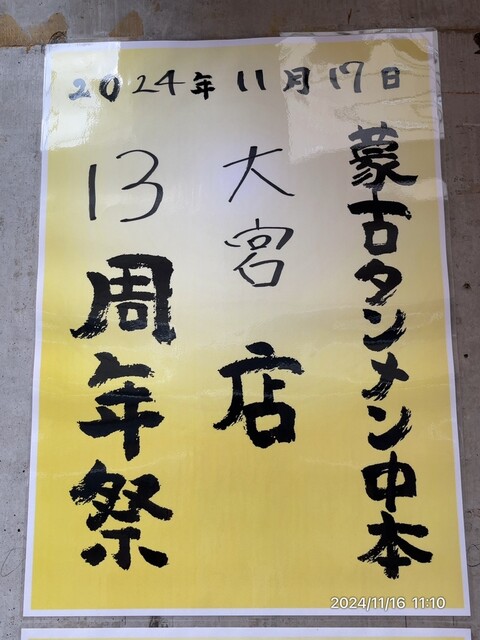 2024年11月17日
蒙古タンメン中本
大宮店
13周年祭
2024/11/16 11:10